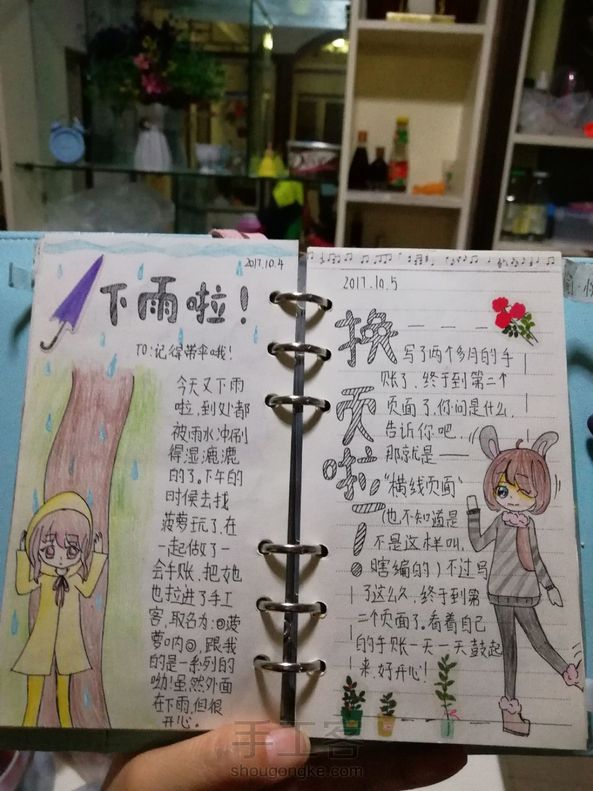 2017.10.4
下雨啦!
TO:记得带伞哦!
今天又下雨
啦,到处都
被雨水冲刷
得湿漉漉
的了。下午的
时候去找
菠萝玩了,在
一起做了一
会手账,把她
也拉进了手工
客,取名为:◎菠
萝呐◎,跟我
的是一系列的
呦!虽然外面
在下雨,但很
开心。
2017.10.5
换页啦!
写了两个多月的手
账了,终于到第二个
页面了,你问是什么,
告诉你吧,
那就是——
"横线页面"
(也不知道是
不是这样叫,
瞎编的)不过写
了这么久,终于到第
二个页面了。看着自己
的手账一天一天鼓起
来,好开心!
手工客
shougongke.com